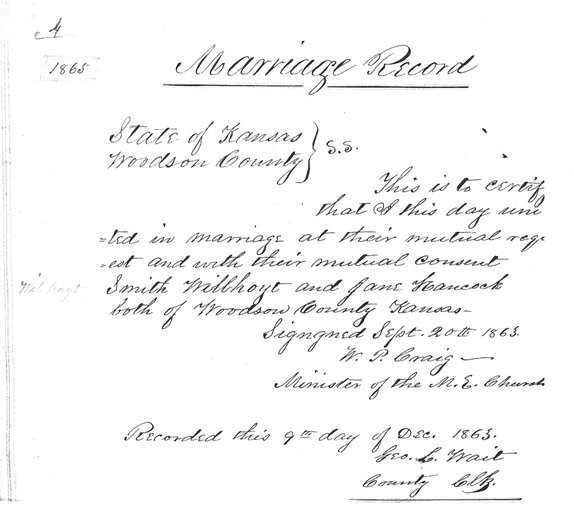 4
1865
Marriage Record
State of Kansas
Woodson County } S.S.
This is to certify
that I this day uni
=ted in marriage at their mutual requ
-est and with their mutual consent
Smith Wilbhoyt and Jane Hancock
both of Woodson County Kansas-
Signgned Sept. 20th 1863.
W. P. Craig—
Minister of the M.E. Church
Recorded this 9th day of Dec. 1863.
Geo. L. Wait
County Clk.